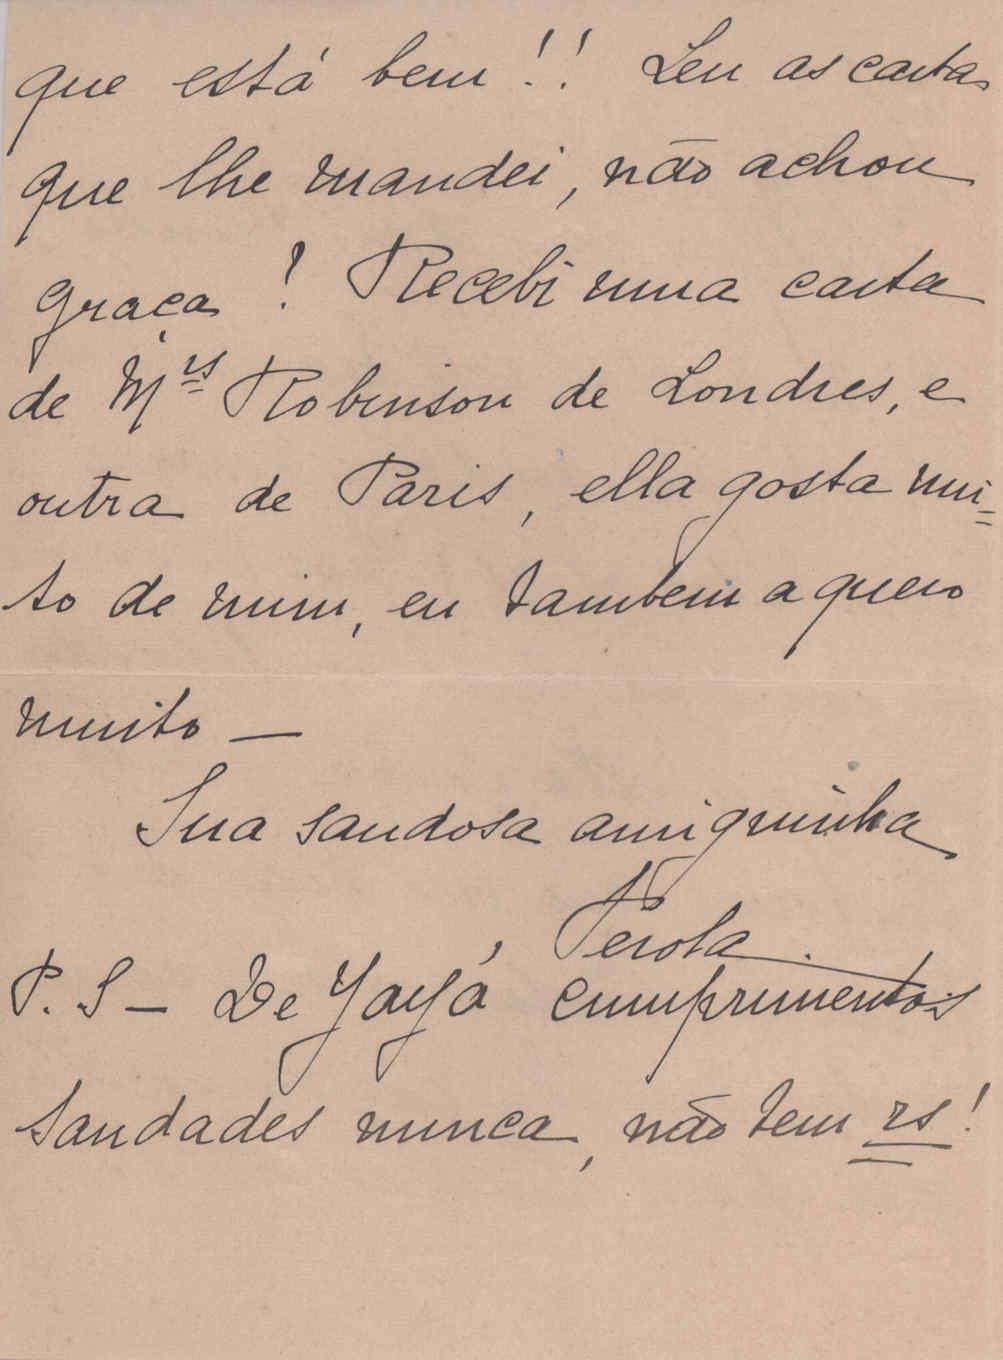 que está bem!! Leu as cartas
que lhe mandei, não achou
graça! Recebi uma carta
de Mrs Robinson de Londres, e
outra de Paris, ella gosta mui=
to de mim, eu tambem a quero
muito —
Sua saudosa amiguinha
Perola.
P. S — De Yayá cumprimentos
saudades nunca, não tem rs!